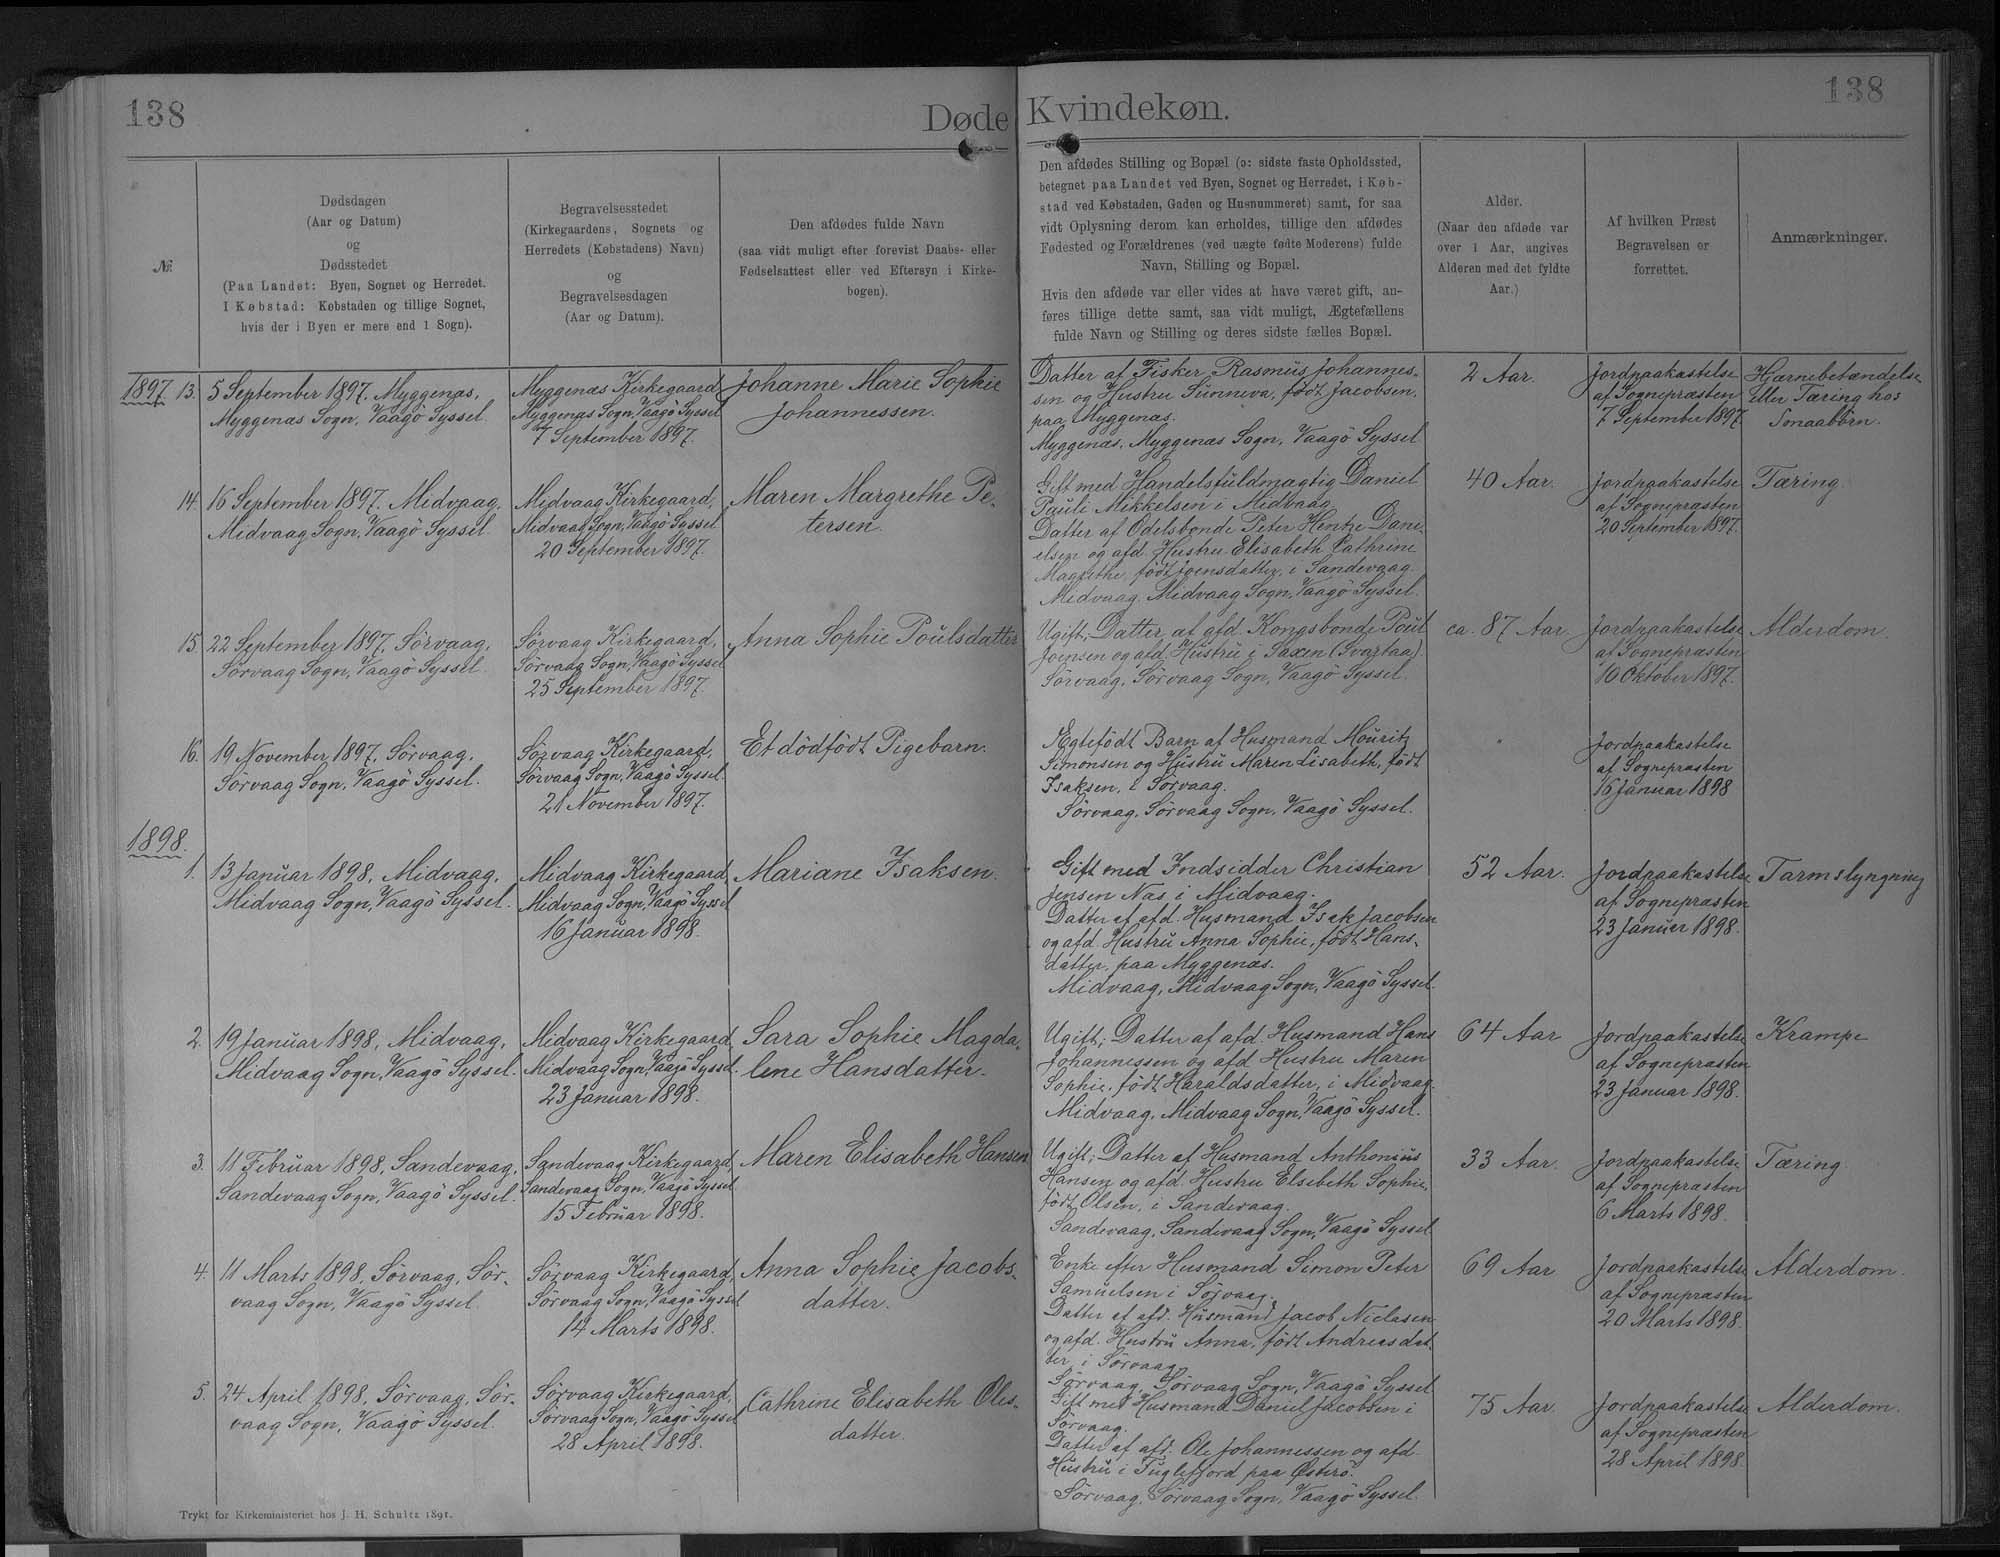 138
Døde Kvindekøn.
138
№
Dødsdagen
(Aar og Datum)
og
Dødsstedet
(Paa Landet: Byen, Sognet og Herredet.
I Købstad: Købstaden og tillige Sognet,
hvis der i Byen er mere end 1 Sogn).
Begravelsesstedet
(Kirkegaardens, Sognets og
Herredets (Købstadens) Navn)
og
Begravelsesdagen
(Aar og Datum).
Den afdødes fulde Navn
(saa vidt muligt efter forevist Daabs- eller
Fødselsattest eller ved Eftersyn i Kirke-
bogen).
Den afdødes Stilling og Bopæl (ɔ: sidste faste Opholdssted,
betegnet paa Landet ved Byen, Sognet og Herredet, i Køb-
stad ved Købstaden, Gaden og Husnummeret) samt, for saa
vidt Oplysning derom kan erholdes, tillige den afdødes
Fødested og Forældrenes (ved uægte fødte Moderens) fulde
Navn, Stilling og Bopæl.
Hvis den afdøde var eller vides at have været gift, an-
føres tillige dette samt, saa vidt muligt, Ægtefællens
fulde Navn og Stilling og deres sidste fælles Bopæl.
Alder.
(Naar den afdøde var
over 1 Aar, angives
Alderen med det fyldte
Aar.)
Af hvilken Præst
Begravelsen er
forrettet.
Anmærkninger.
1897. 13.
5 September 1897. Myggenæs,
Myggenæs Sogn, Vaagö Syssel.
Myggenæs Kirkegaard,
Myggenæs Sogn, Vaagö Syssel
7 September 1897.
Johanne Marie Sophie
Johannessen.
Datter af Fisker Rasmus Johannes-
sen og Hustru Sunneva, født Jacobsen,
paa Myggenæs.
Myggenæs, Myggenæs Sogn, Vaagö Syssel
2 Aar.
Jordpaakastelse
af Sognepræsten
7 September 1897.
Hjernebetændelse
eller Tæring hos
Smaabörn.
14.
16 September 1897. Midvaag,
Midvaag Sogn, Vaagö Syssel.
Midvaag Kirkegaard,
Midvaag Sogn, Vaagö Syssel.
20 September 1897.
Maren Margrethe Pe-
tersen.
Gift med Handelsfuldmægtig Daniel
Pauli Mikkelsen i Midvaag
Datter af Odelsbonde Peter Hentze Dani-
elsen og afd. Hustru Elisabeth Cathrine
Magrethe, født Joensdatter, i Sandevaag.
Midvaag, Midvaag Sogn, Vaagö Syssel.
40 Aar.
Jordpaakastelse
af Sognepræsten
20 September 1897.
Tæring.
15.
22 September 1897, Sörvaag,
Sörvaag Sogn, Vaagö Syssel.
Sörvaag Kirkegaard,
Sörvaag Sogn, Vaagö Syssel
25 September 1897.
Anna Sophie Poulsdatter
Ugift; Datter af afd. Kongsbonde Poul
Joensen og afd. Hustru i Saxen (Svartaa).
Sörvaag, Sörvaag Sogn, Vaagö Syssel.
ca. 87 Aar.
Jordpaakastelse
af Sognepræsten
10 Oktober 1897.
Alderdom.
16.
19 November 1897, Sörvaag,
Sörvaag Sogn, Vaagö Syssel.
Sörvaag Kirkegaard,
Sörvaag Sogn, Vaagö Syssel.
21 November 1897.
Et dödfödt Pigebarn.
Ægtefödt Barn af Husmand Mouritz
Simonsen og Hustru Maren Lisabeth, født
Isaksen, i Sörvaag.
Sörvaag, Sörvaag Sogn, Vaagö Syssel.
"
Jordpaakastelse
af Sognepræsten
16 Januar 1898
1898.
1.
13 Januar 1898, Midvaag,
Midvaag Sogn, Vaagö Syssel.
Midvaag Kirkegaard,
Midvaag Sogn, Vaagö Syssel
16 Januar 1898.
Mariane Isaksen.
Gift med Indsidder Christian
Jensen Næs i Midvaag.
Datter af afd. Husmand Isak Jacobsen
og afd. Hustru Anna Sophie, født Hans-
datter, paa Myggenæs.
Midvaag, Midvaag Sogn, Vaagö Syssel.
52 Aar.
Jordpaakastelse
af Sognepræsten
23 Januar 1898.
Tarmslyngning
2.
19 Januar 1898, Midvaag,
Midvaag Sogn, Vaagö Syssel.
Midvaag Kirkegaard,
Midvaag Sogn, Vaagö Syssel.
23 Januar 1898.
Sara Sophie Magda-
lene Hansdatter.
Ugift; Datter af afd. Husmand Hans
Johannessen og afd Hustru Maren
Sophie, født Haraldsdatter, i Midvaag.
Midvaag, Midvaag Sogn, Vaagö Syssel.
64 Aar
Jordpaakastelse
af Sognepræsten
23 Januar 1898.
Krampe
3.
11 Februar 1898, Sandevaag,
Sandevaag Sogn, Vaagö Syssel.
Sandevaag Kirkegaard,
Sandevaag Sogn, Vaagö Syssel.
15 Februar 1898.
Maren Elisabeth Hansen
Ugift; Datter af Husmand Anthonius
Hansen og afd. Hustru Elsebeth Sophie,
født Olsen, i Sandevaag.
Sandevaag, Sandevaag Sogn, Vaagö Syssel
33 Aar.
Jordpaakastelse
af Sognepræsten
6 Marts 1898.
Tæring.
4.
11 Marts 1898, Sörvaag, Sör-
vaag Sogn, Vaagö Syssel.
Sörvaag Kirkegaard,
Sörvaag Sogn, Vaagö Syssel
14 Marts 1898.
Anna Sophie Jacobs-
datter.
Enke efter Husmand Simon Peter
Samuelsen i Sörvaag.
Datter af afd. Husmand Jacob Niclasen
og afd. Hustru Anna, født Andreasdat-
ter, i Sörvaag
Sörvaag, Sörvaag Sogn, Vaagö Syssel
69 Aar
Jordpaakastelse
af Sognepræsten
20 Marts 1898.
Alderdom.
5.
24 April 1898, Sörvaag, Sör-
vaag Sogn, Vaagö Syssel.
Sörvaag Kirkegaard,
Sörvaag Sogn, Vaagö Syssel
28 April 1898.
Cathrine Elisabeth Oles-
datter.
Gift med Husmand Daniel Jacobsen i
Sörvaag.
Datter af afd. Ole Johannessen og afd.
Hustru i Fuglefjord paa Østerö.
Sörvaag, Sörvaag Sogn, Vaagö Syssel.
75 Aar
Jordpaakastelse
af Sognepræsten
28 April 1898.
Alderdom.
Trykt for Kirkeministeriet hos J. H. Schultz 1891.